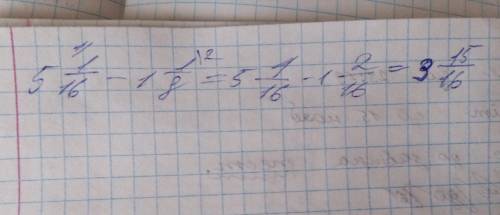 5 1/16 \1 - 1 1/8 \2 = 5 1/16 - 1 2/16 = 3 15/16